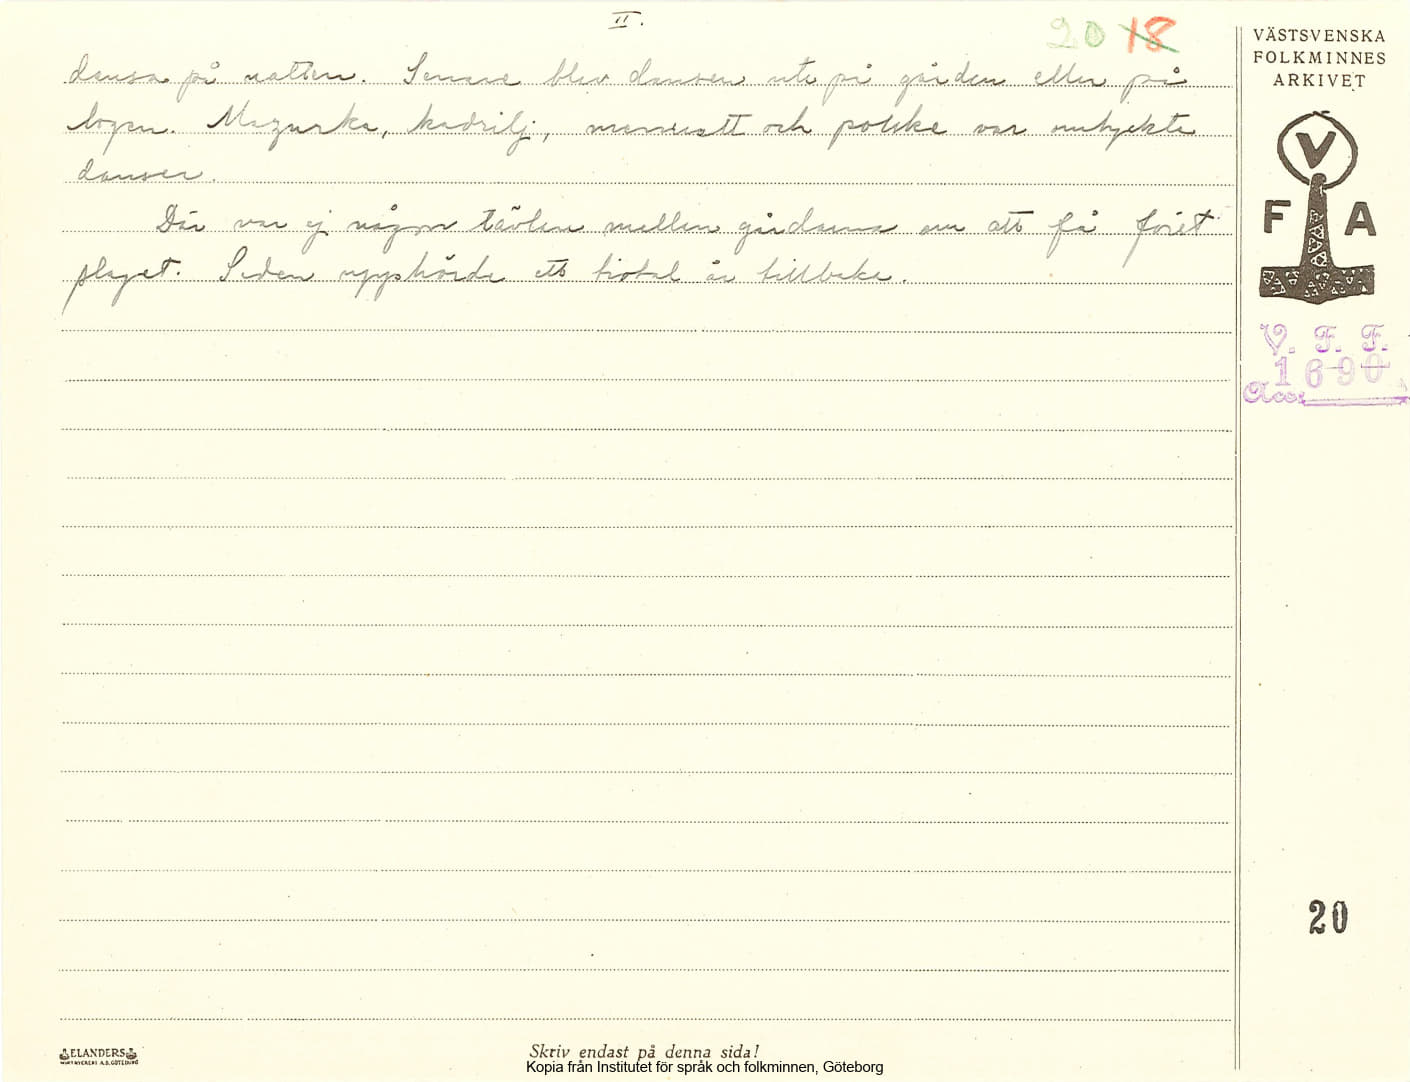 II.
20 18
dansa på natten. Senare blev dansen ute på gården eller på
logen. Mazurka, kadrilj, menuett och polske var omtyckta
danser.
Där var ej någon tävlan mellan gårdarna om att få först
slaget. Seden upphörde ett tiotal år tillbaka.
VÄSTSVENSKA
FOLKMINNES
ARKIVET
V
F A
V. F. F.
1690
Acc.
20
ELANDERS
Skriv endast på denna sida!
Kopia från Institutet för språk och folkminnen, Göteborg